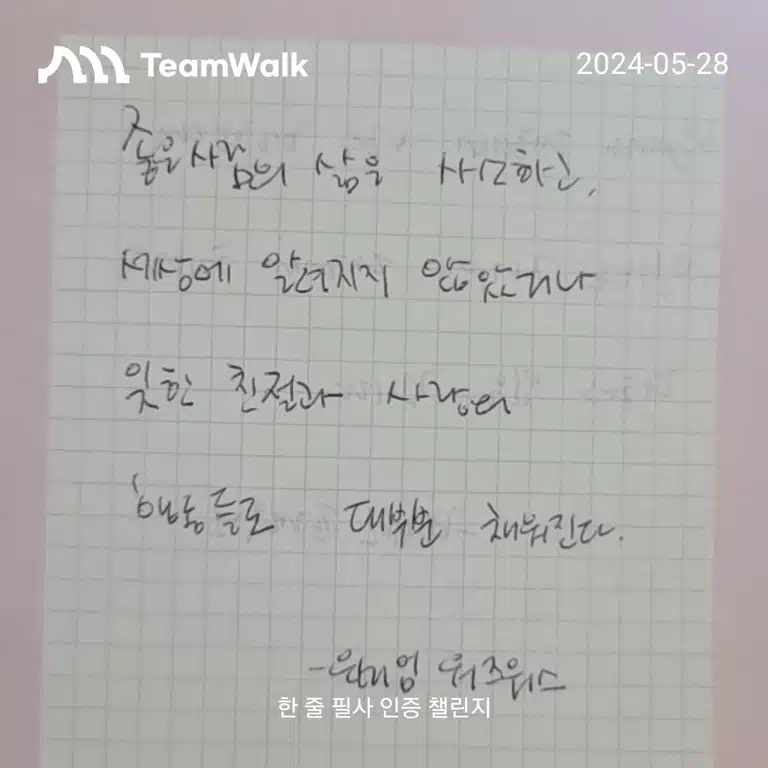 TeamWalk
2024-05-28
좋은 사람의 삶은 사소하고,
세상에 알려지지 않았거나
잊힌 친절과 사랑의
행동들로 대부분 채워진다.
-윌리엄 워즈워스
한 줄 필사 인증 챌린지